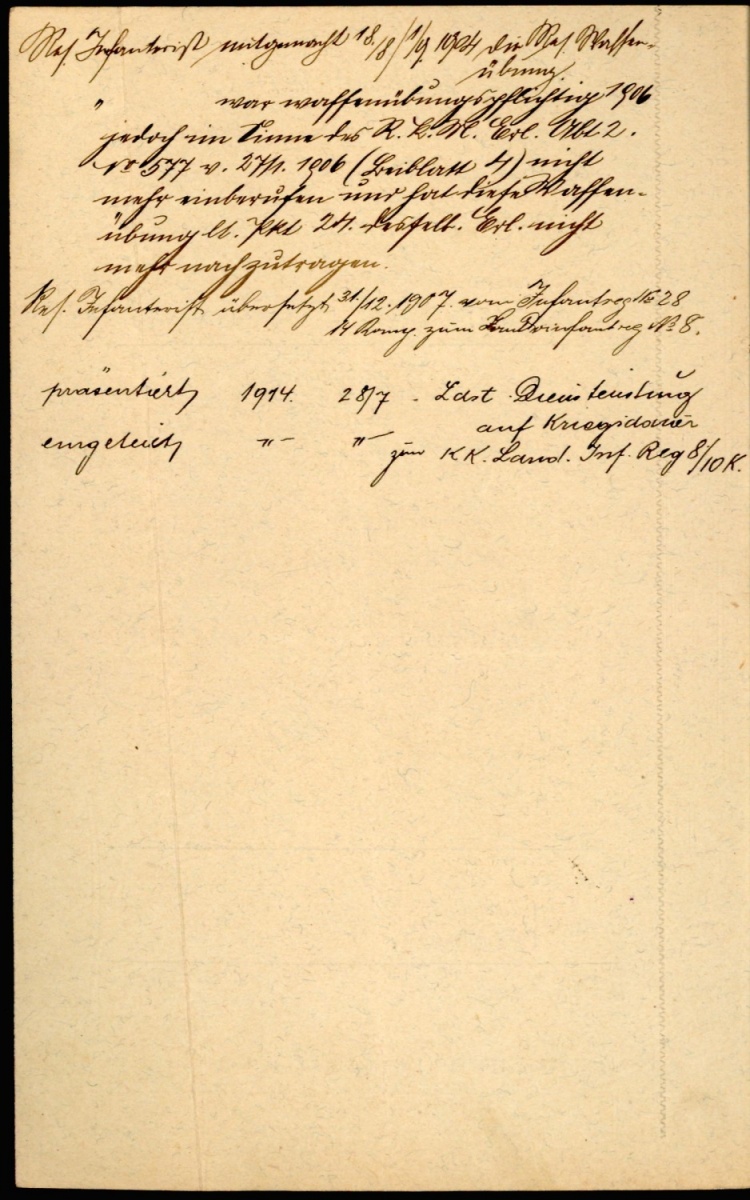 Res. Infanterist mitgemacht 18./8/1/9 1904 die Res. Waffen-
übung.
" war waffenübungspflichtig 1906
jedoch im Sinne des R. K. M. Erl. Abt 2.
No 577 v. 27/1. 1906 (Beiblatt 4) nicht
mehr einberufen und hat diese Waffen-
übung lt. Pkt 24. desselb. Erl. nicht
mehr nachzutragen.
Res. Infanterist übersetzt 31./12. 1907. vom Infantreg No 28
14 Komp. zum Landwinfantreg No 8.
präsentiert 1914. 28/7 - Ldst. Dienstleistung
auf Kriegsdauer
eingeteilt " - " - zum KK. Land. Inf. Reg 8/10 K.